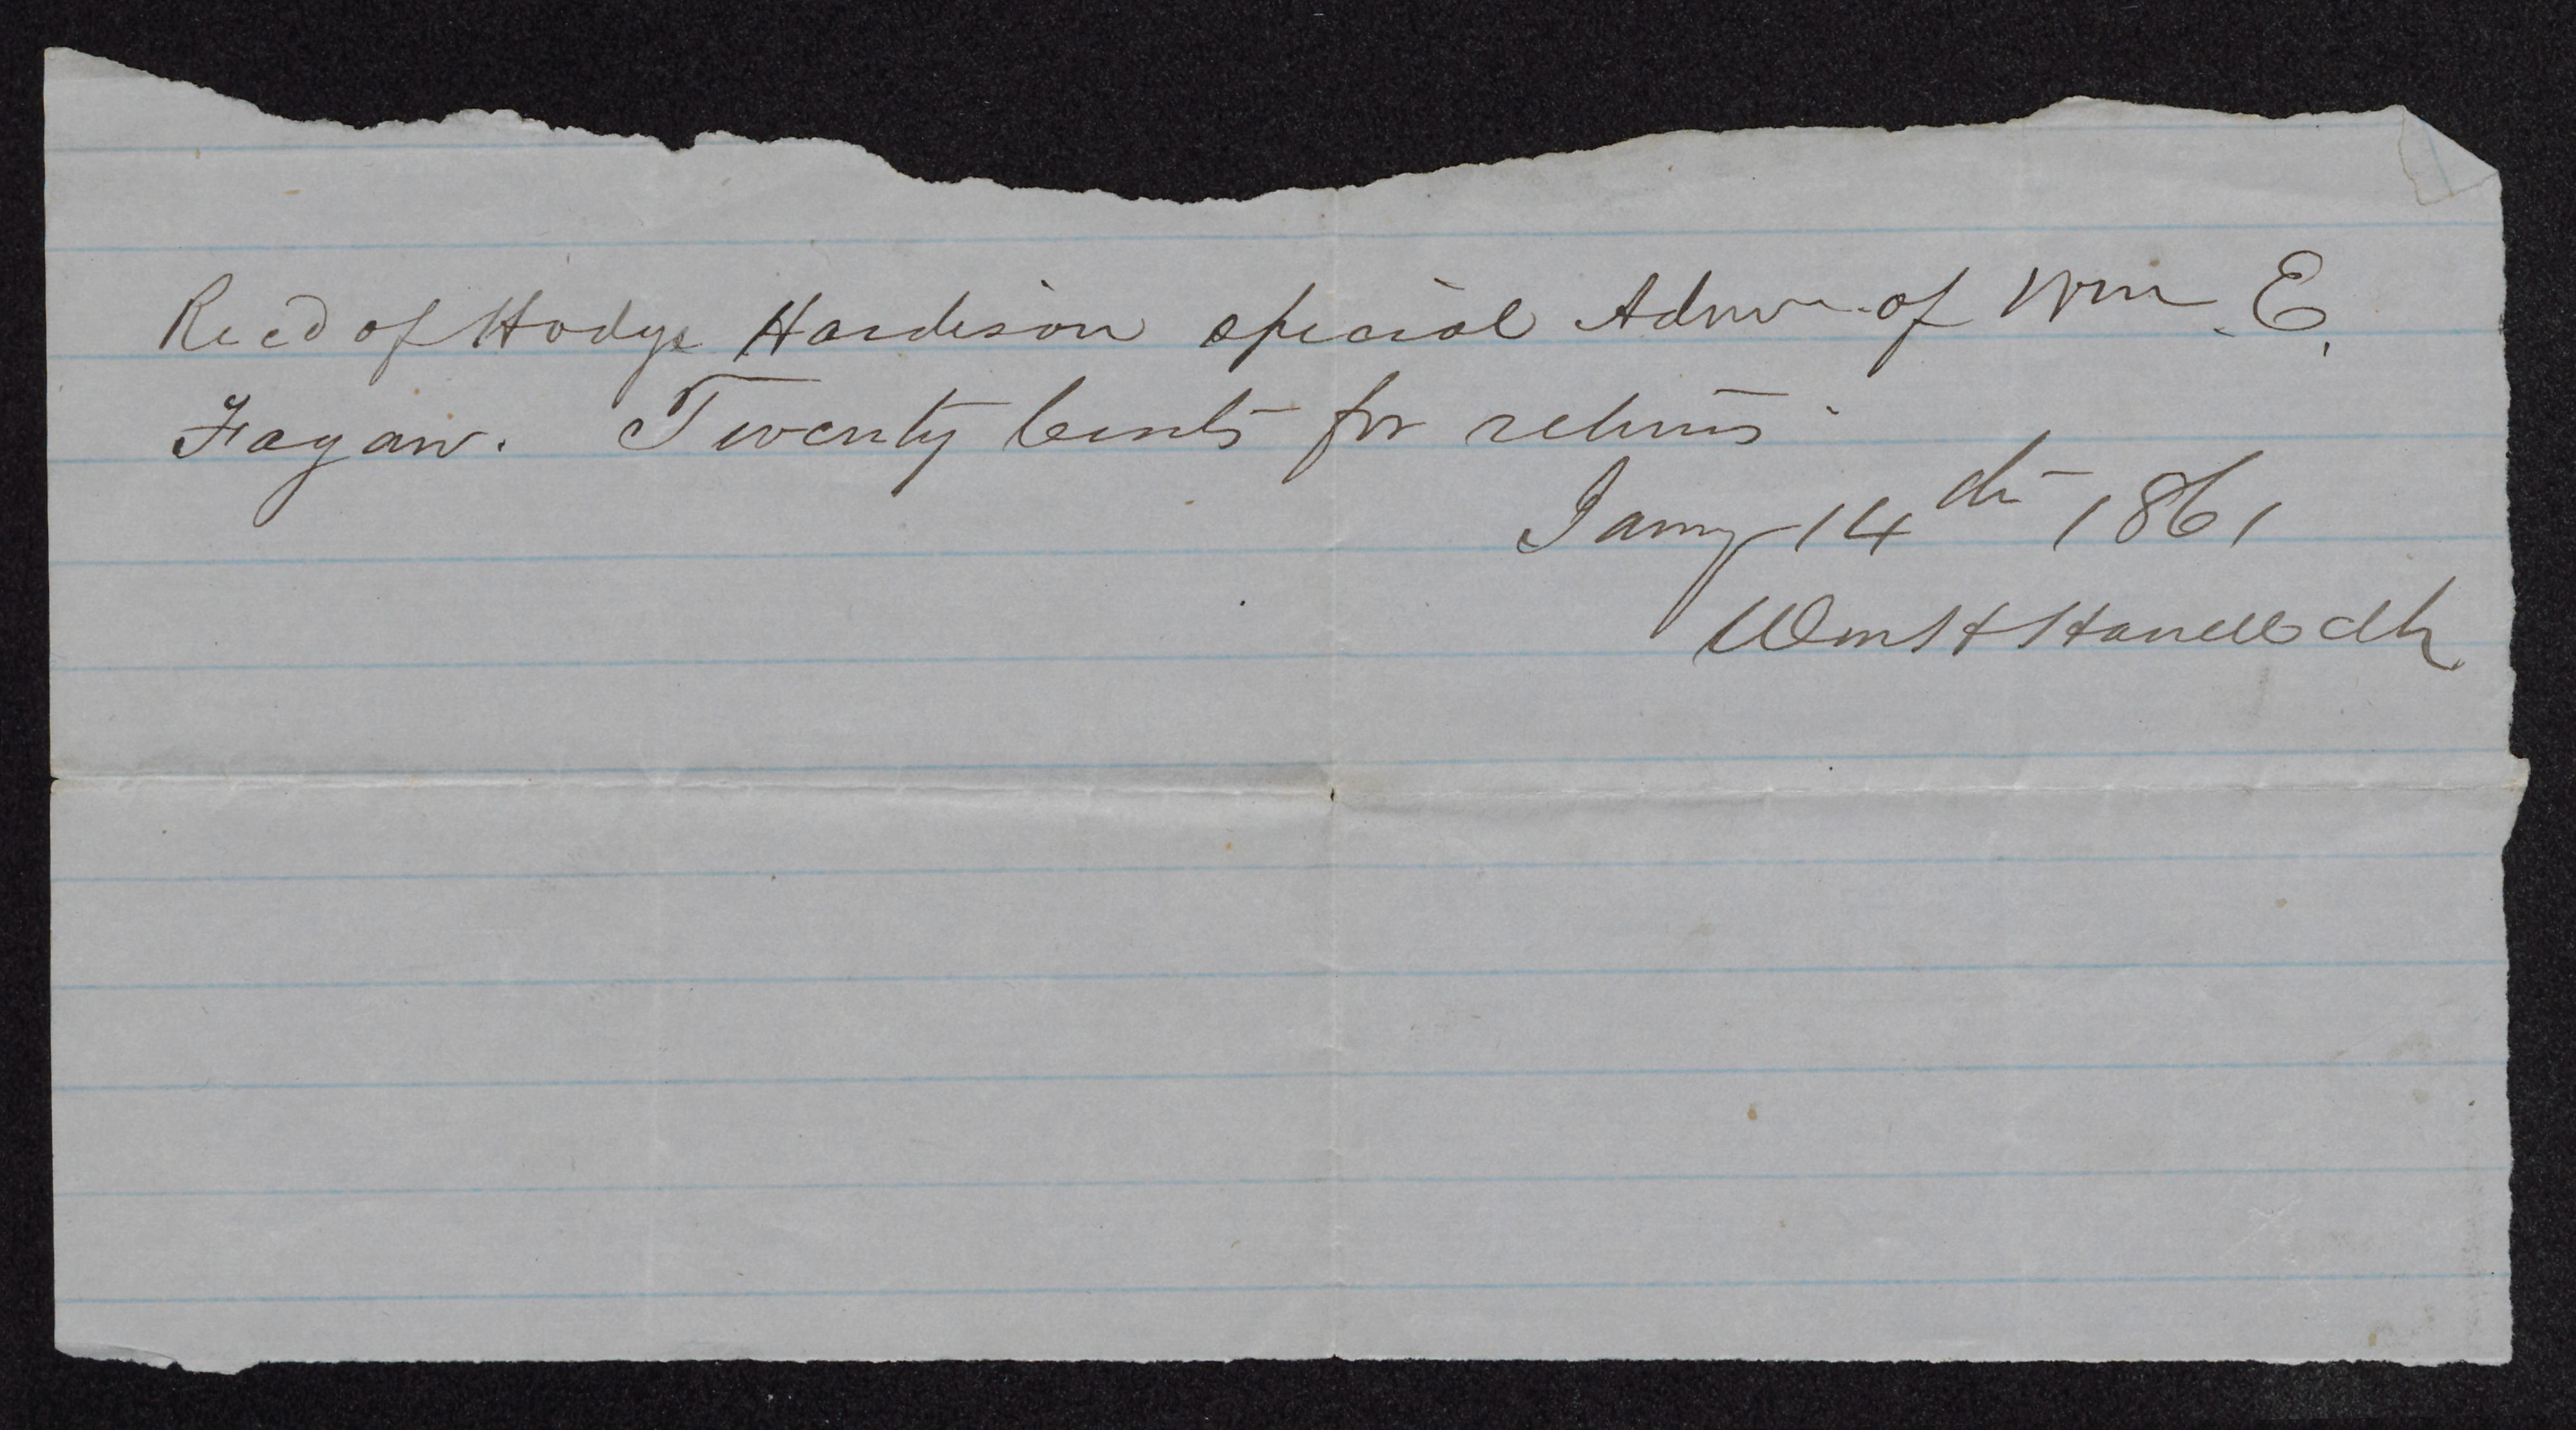 Recd of Hodge Hardison special Admr of Wm. E.
Fagan. Twenty Cents for returns
Jany 14th 1861
Wm H Harrell clk